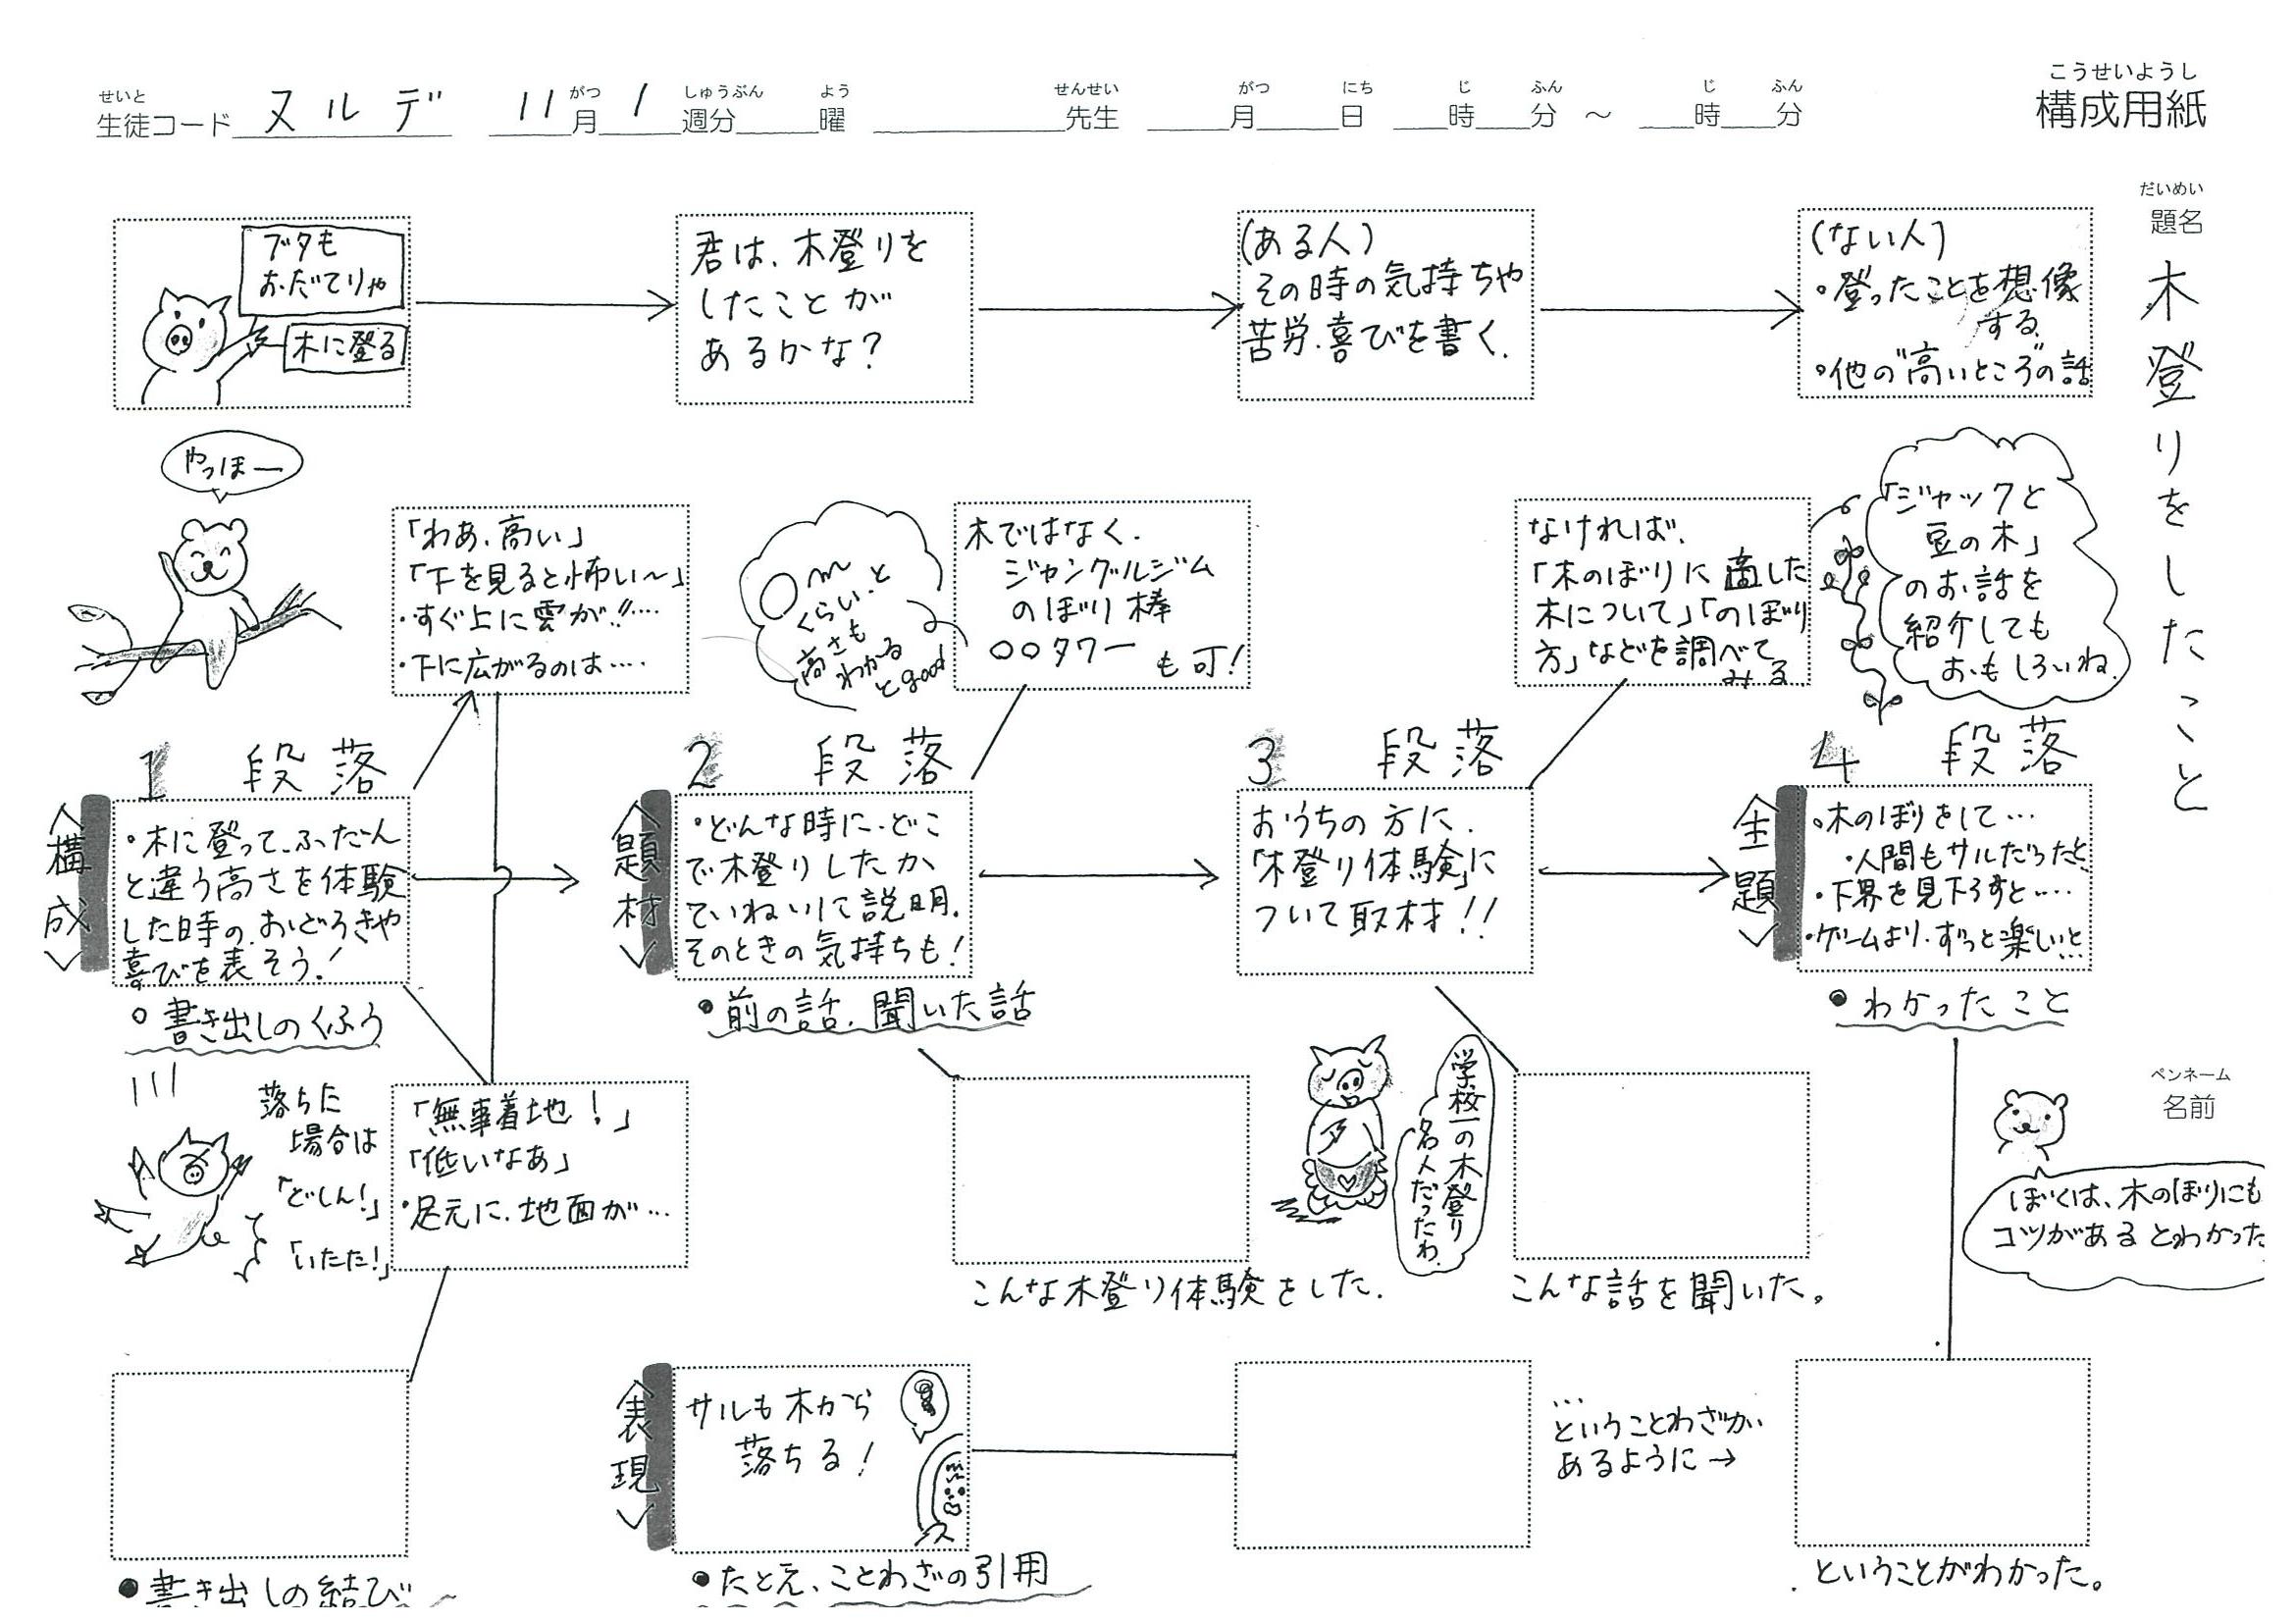 こうせいようし
構成用紙
せいと
生徒コード ヌルデ 11月 1週分 曜 先生 月 日 時 分 ～ 時 分
がつ しゅうぶん よう せんせい がつ にち じ ふん じ ふん
だいめい
題名
木登りをしたこと
ブタも
おだてりゃ
木に登る
君は、木登りを
したことが
あるかな?
(ある人)
その時の気持ちや
苦労、喜びを書く.
(ない人)
・登ったことを想像
する.
・他の"高いところ"の話
やっほー
「わあ、高い」
「下を見ると怖い〜」
・すぐ上に雲が!!….
・下に広がるのは….
〇m
くらい、と
高さも
わかる
とgood
木ではなく.
ジャングルジム
のぼり棒
〇〇タワー
も可!
なければ、
「木のぼりに適した
木について」「のぼり
方」などを調べて
みる
「ジャックと
豆の木」
のお話を
紹介しても
おもしろいね.
1 段落
2 段落
3 段落
4 段落
〈構成〉
・木に登って、ふだん
と違う高さを体験
した時の、おどろきや
喜びを表そう!
○書き出しのくふう
〈題材〉
・どんな時に、どこ
で木登りしたか
ていねいに説明.
そのときの気持ちも!
●前の話、聞いた話
おうちの方に、
「木登り体験」に
ついて取材!!
〈主題〉
・木のぼりをして…
・人間もサルだったと
・下界を見下ろすと….
・ゲームより、ずっと楽しいと…
●わかったこと
落ちた
場合は
「どしん!」
「いたた!」
「無事着地!」
「低いなあ」
・足元に、地面が…
こんな木登り体験をした.
学校一の木登り
名人だったわ.
こんな話を聞いた。
ペンネーム
名前
ぼくは、木のぼりにも
コツがあるとわかった
●書き出しの結び
〈表現〉
サルも木から
落ちる!
●たとえ、ことわざの引用
…
ということわざが
あるように→
ということがわかった。